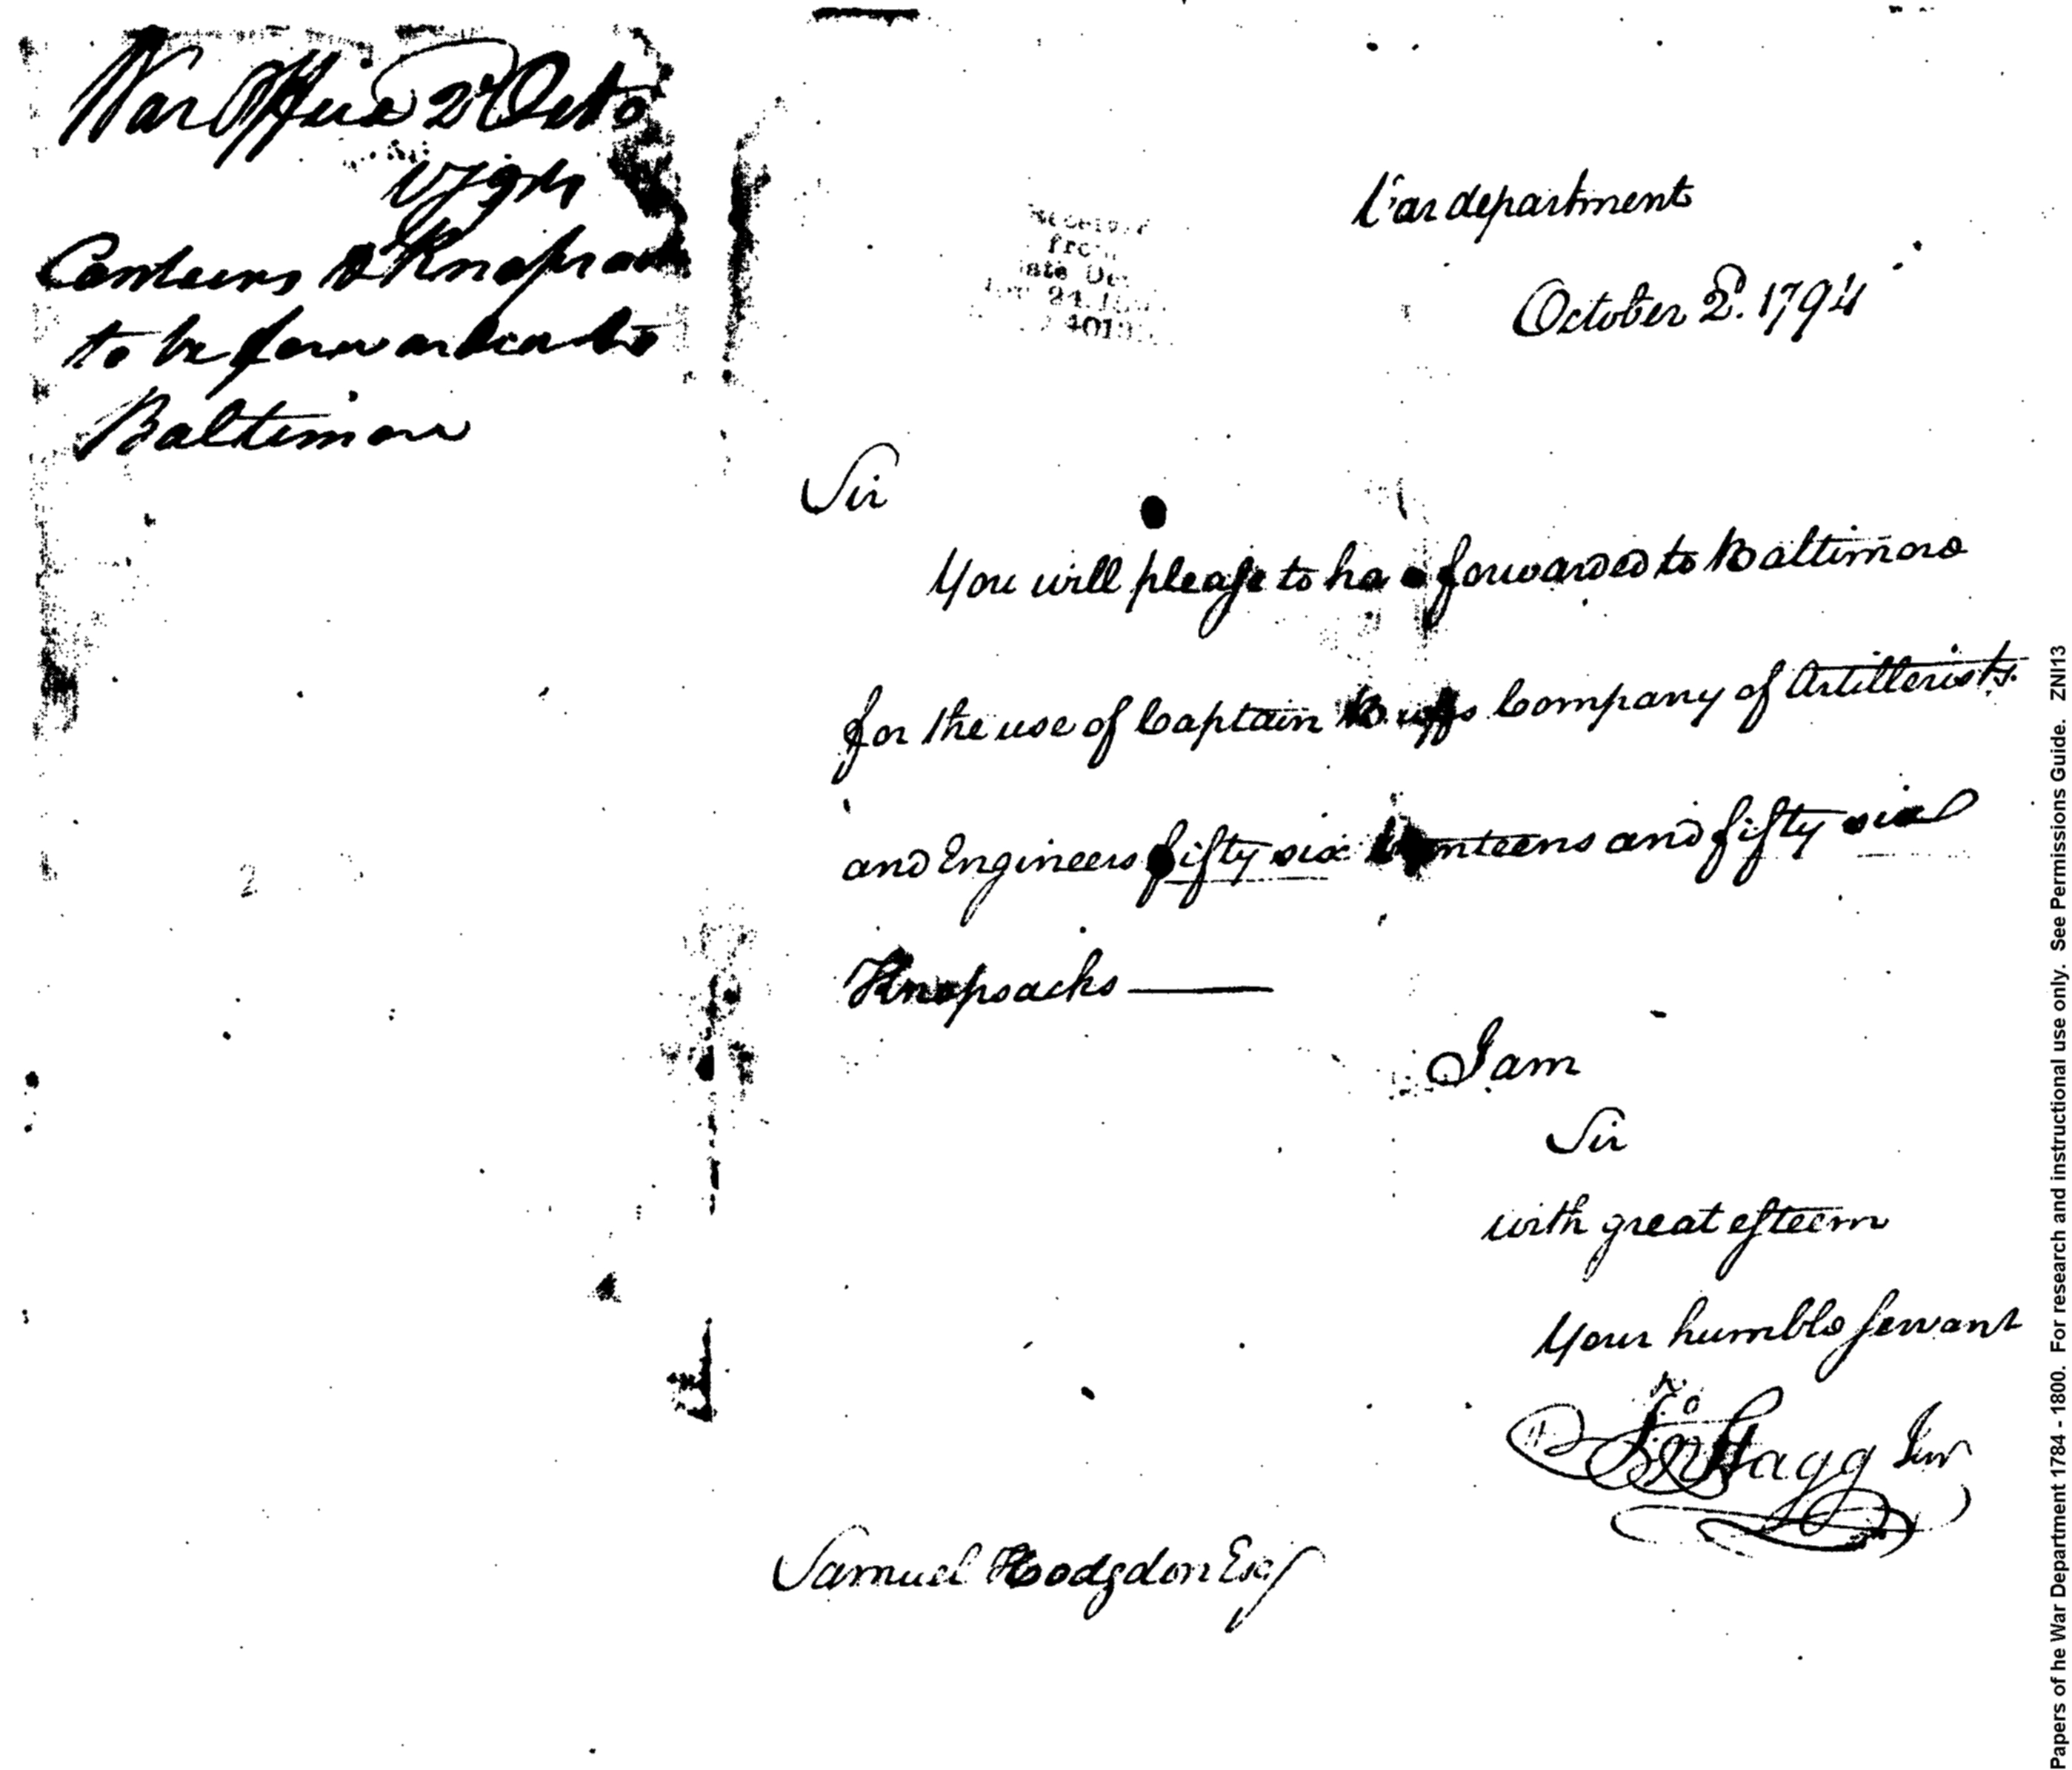 War Office 2d Octo
1794
Canteens & Knapsacks
to be forwarded to
Baltimore
War department
October 2d. 1794
Sir
You will please to have forwarded to Baltimore
for the use of Captain Company of Artillerists
and Engineers fifty six Canteens and fifty six
Knapsacks —
I am
Sir
with great esteem
Your humble servant
Jno Stagg Junr
Samuel Hodgdon Esq
Papers of he War Department 1784 - 1800. For research and instructional use only. See Permissions Guide. ZNI13